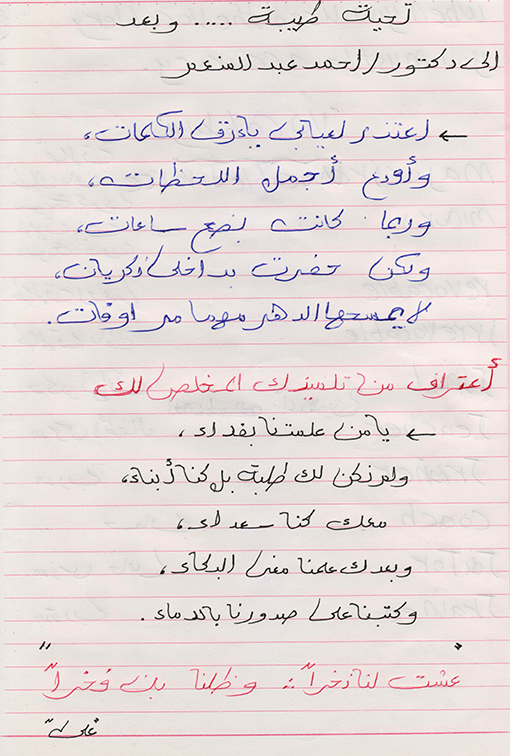 تحية طيبة ..... وبعد
الى دكتور/احمد عبد المنعم
← اعتذر لغيابي بأرق الكلمات،
وأودع أجمل اللحظات،
وربما كانت بضع ساعات،
ولكن حضرت بداخلى ذكريات،
لا يمسحها الدهر مهما مر اوقات.
أعتراف من تلميذك المخلص لك
← يا من علمتنا بفداء،
ولم نكن لك طلبة بل كنا أبناء،
معك كنا سعداء،
وبعدك علمنا معنى البكاء،
وكتبنا على صدورنا بالدماء.
" عشت لنا ذخراً :: وظلنا بك فخراً "